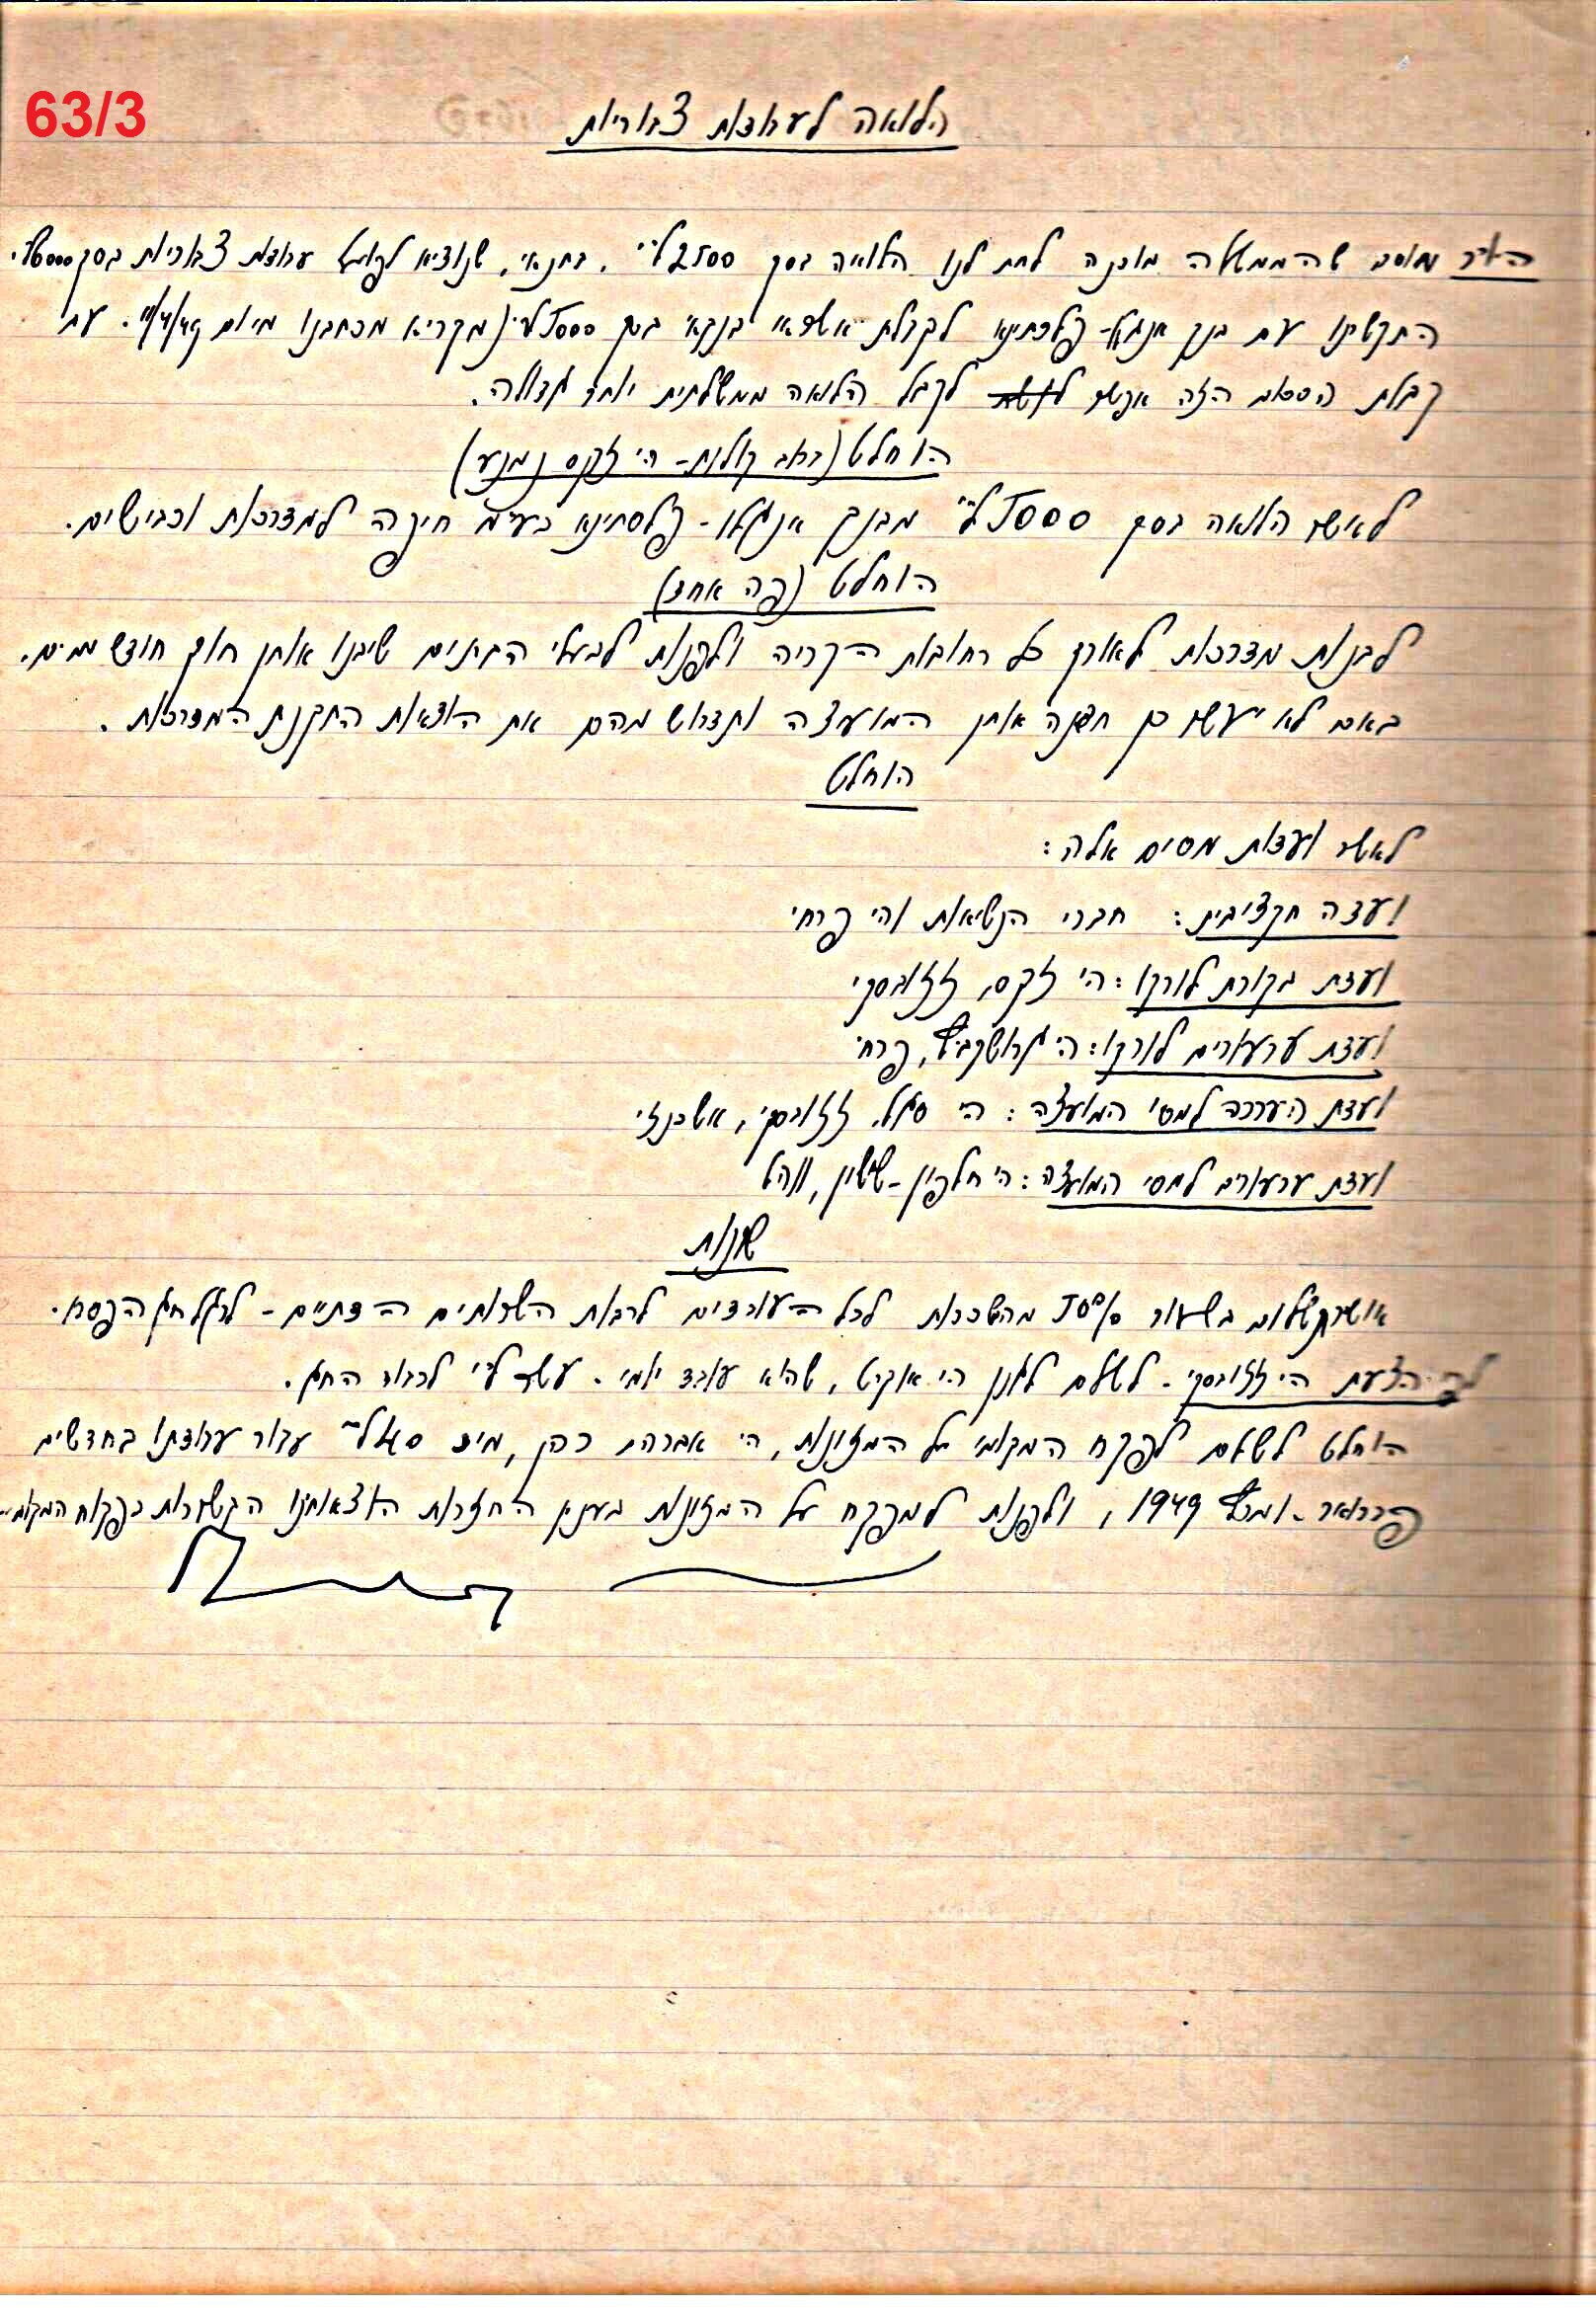 63/3
הלואה לעבודות צבוריות
היו"ר מוסר שהממשלה מוכנה לתת לנו הלואה בסך 2500 ל"י, בתנאי, שנוציא לפועל עבודות צבוריות בסך
התקשרנו עם בנק אנגלו-פלשתינא לקבלת אשראי בנקאי בסך 5000 ל"י (מקריא מכתבנו מיום 11/4/49. עם
קבלת הסכום הזה אפשר לקבל הלואה ממשלתית יותר גדולה.
הוחלט (ברוב קולות - ה' זקס נמנע)
לאשר הלואה בסך 5000 ל"י מבנק אנגלו-פלסתינא בע"מ חיפה למדרכות וכבישים.
הוחלט (פה אחד)
לבנות מדרכות לאורך כל רחובות הקריה ולפנות לבעלי הבתים שיבנו אותן תוך חודש ימים.
באם לא יעשו כן תבנה אותן המועצה ותדרוש מהם את הוצאות התקנת המדרכות.
הוחלט
לאשר ועדות מסים אלה:
ועדה תקציבית: חברי הנשיאות וה' פרחי
ועדת בקורת לורקו: ה' זקס, זזובסקי
ועדת ערעורים לורקו: ה' גרושקביץ, פרחי
ועדת הערכה למסי המועצה: ה' סגל, זזובסקי, אשכנזי
ועדת ערעורים למסי המועצה: ה' חלפון-ששון, ווהל
שונות
אושר תשלום בשעור 50% מהשכורת לכל העובדים לרבות השרותים הדתיים - לרגל חג הפסח.
לפי הצעת ה' זזובסקי - לשלם לגנן ה' אוקרט, שהוא עובד יומי - עשר ל"י לכבוד החג.
הוחלט לשלם לפקח המקומי על המזונות, ה' אברהם כהן, סך 40 ל"י עבור עבודתו בחדשים
פברואר-ומרץ 1949, ולפנות למפקח על המזונות בענין החזרת הוצאותינו הקשורות בפקוח המקומי